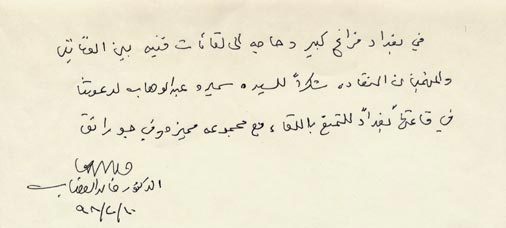 في بغداد فراغ كبير وحاجة الى لقاءات فنية بين الفنانين
والمهتمين النقاد، شكراً للسيدة سميرة عبدالوهاب لدعوتنا
في قاعتها بغداد للتمتع باللقاء مع مجموعه مميزه وفي جو رائق
الدكتور خالد القصاب